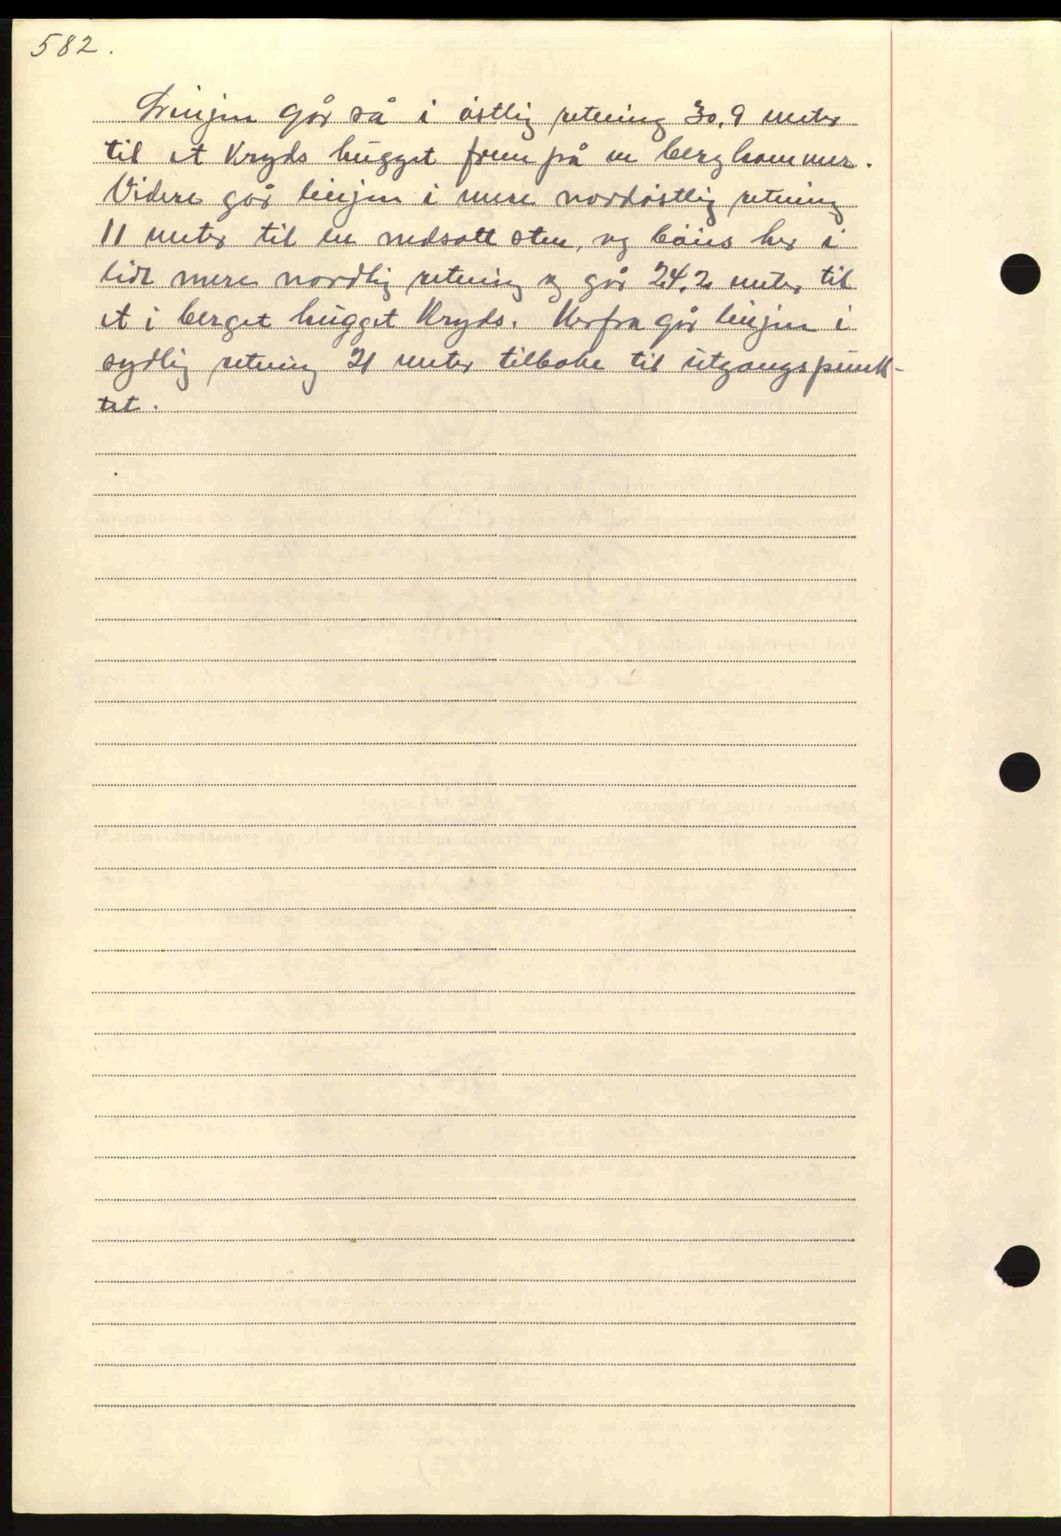 582.
Linjen går så i östlig retning 30,9 meter
til et Kryds hugget frem på en berghammer.
Videre går linjen i mere nordöstlig retning
11 meter til en nedsatt sten, og böies her i
lidt mere nordlig retning og går 24,2 meter til
et i berget hugget Kryds. Herfra går linjen i
sydlig retning 21 meter tilbake til utgangspunk-
tet.